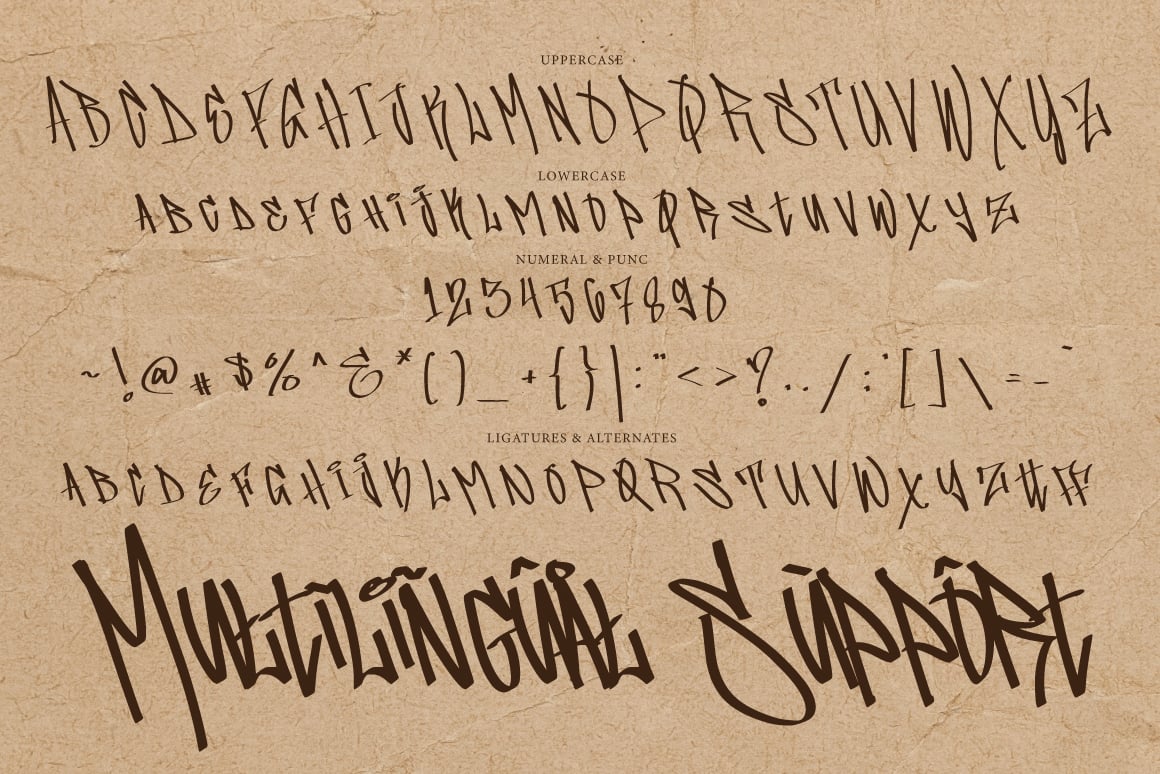 UPPERCASE
ABCDEFGHIJKLMNOPQRSTUVWXYZ
LOWERCASE
ABCDEFGHijKLMNOPQRStUVWXYZ
NUMERAL & PUNC
1234567890
~!@#$%^&*()_+{}|:"<>?../;'[]\=-`
LIGATURES & ALTERNATES
ABCDEFGHijKLMNOPQRSTUVWXYZ tt FF
Multĩlĩñgûål Sùppôrt